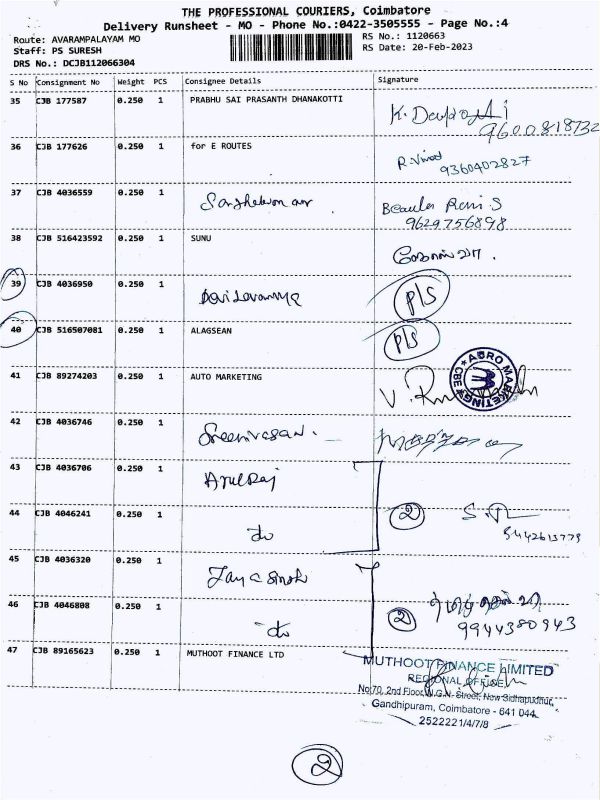 THE PROFESSIONAL COURIERS, Coimbatore
Delivery Runsheet - MO - Phone No.:0422-3505555 - Page No.:4
Route: AVARAMPALAYAM MO
RS No.: 1120663
Staff: PS SURESH
RS Date: 20-Feb-2023
DRS No.: DCJB112066304
S No Consignment No Weight PCS Consignee Details Signature
35 CJB 177587 0.250 1 PRABHU SAI PRASANTH DHANAKOTTI
9600818732
36 CJB 177626 0.250 1 for E ROUTES R. Vinod
9360402827
37 CJB 4036559 0.250 1
9629756898
38 CJB 516423592 0.250 1 SUNU
39 CJB 4036950 0.250 1 Devi Lavannya P/S
40 CJB 516507081 0.250 1 ALAGSEAN P/S
41 CJB 89274203 0.250 1 AUTO MARKETING
AGRO MARKETING CBE
42 CJB 4036746 0.250 1 Sreenivasan.
43 CJB 4036706 0.250 1 Arulraj
44 CJB 4046241 0.250 1 do 2
8442613779
45 CJB 4036320 0.250 1
46 CJB 4046808 0.250 1 do 2
9944380943
47 CJB 89165623 0.250 1 MUTHOOT FINANCE LTD
MUTHOOT FINANCE LIMITED
REGIONAL OFFICE
No:70, 2nd Floor, N.G.N. Street, New Sidhapudhur,
Gandhipuram, Coimbatore - 641 044.
2522221/4/7/8
2